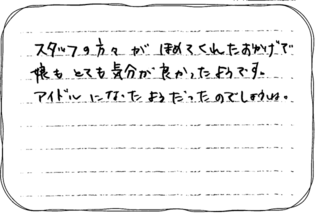 スタッフの方々が ほめてくれたおかげで
娘も とても気分が良かったようです。
アイドルになったようだったのでしょうね。